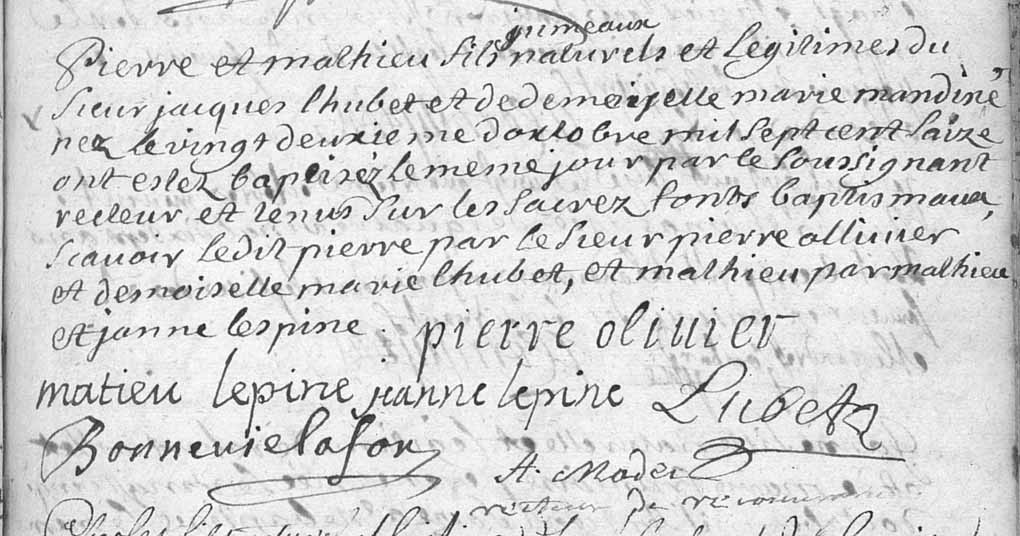 jumeaux
Pierre et mathieu fils naturels et Legitimes du
sieur jacques lhubet et de demoiselle marie mandine
nez le vingt deuxieme doxtobre mil sept cent saize
ont estez baptisez le meme jour par le soussignant
recteur et tenus sur les sacrez fonts baptismaux,
scavoir ledit pierre par le sieur pierre ollivier
et demoiselle marie lhubet, et mathieu par mathieu
et janne lespine . pierre olivier
matieu lepine jeanne lepine Lubet
Bonnevielafon
A. Moder
recteur de